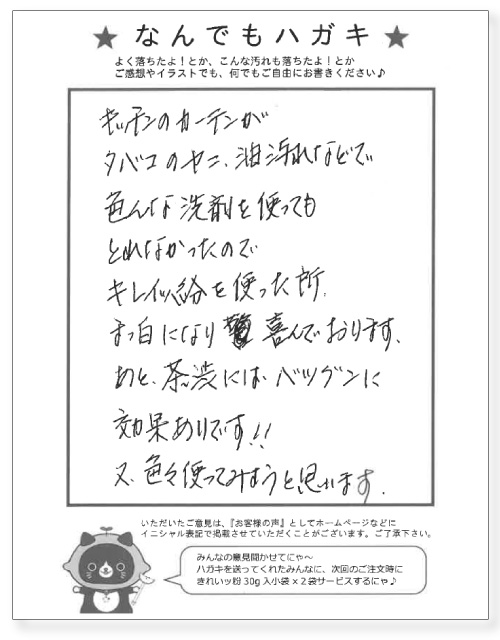 ★ なんでもハガキ ★
よく落ちたよ!とか、こんな汚れも落ちたよ!とか
ご感想やイラストでも、何でもご自由にお書きください♪
キッチンのカーテンが
タバコのヤニ、油汚れなどで
色んな洗剤を使っても
とれなかったので
キレイッ粉を使った所、
まっ白になり 喜んでおります。
あと、茶渋には、バツグンに
効果ありです!!
又、色々使ってみようと思います。
いただいたご意見は、『お客様の声』としてホームページなどに
イニシャル表記で掲載させていただくことがございます。ご了承下さい。
みんなの意見聞かせてにゃ〜
ハガキを送ってくれたみんなに、次回のご注文時に
きれいッ粉30g入小袋×2袋サービスするにゃ♪